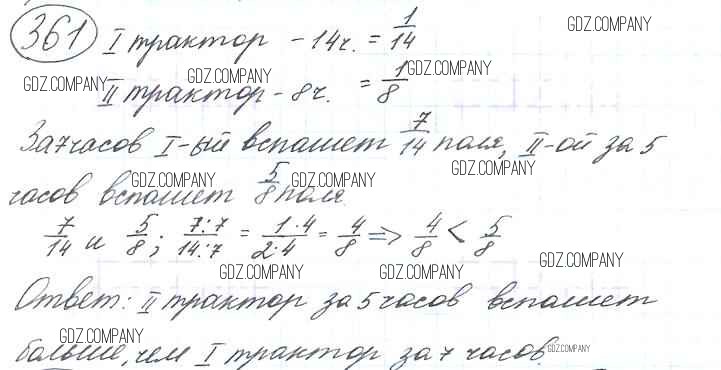 361 I трактор - 14ч. = 1/14
GDZ.COMPANY
II трактор - 8ч. = 1/8
GDZ.COMPANY GDZ.COMPANY GDZ.COMPANY
За 7 часов I-ый вспашет 7/14 поля, II-ой за 5
GDZ.COMPANY
часов вспашет 5/8 поля.
GDZ.COMPANY GDZ.COMPANY
7/14 и 5/8; 7:7/14:7 = 1·4/2·4 = 4/8 => 4/8 < 5/8
GDZ.COMPANY GDZ.COMPANY
Ответ: II трактор за 5 часов вспашет
GDZ.COMPANY
больше, чем I трактор за 7 часов.
GDZ.COMPANY